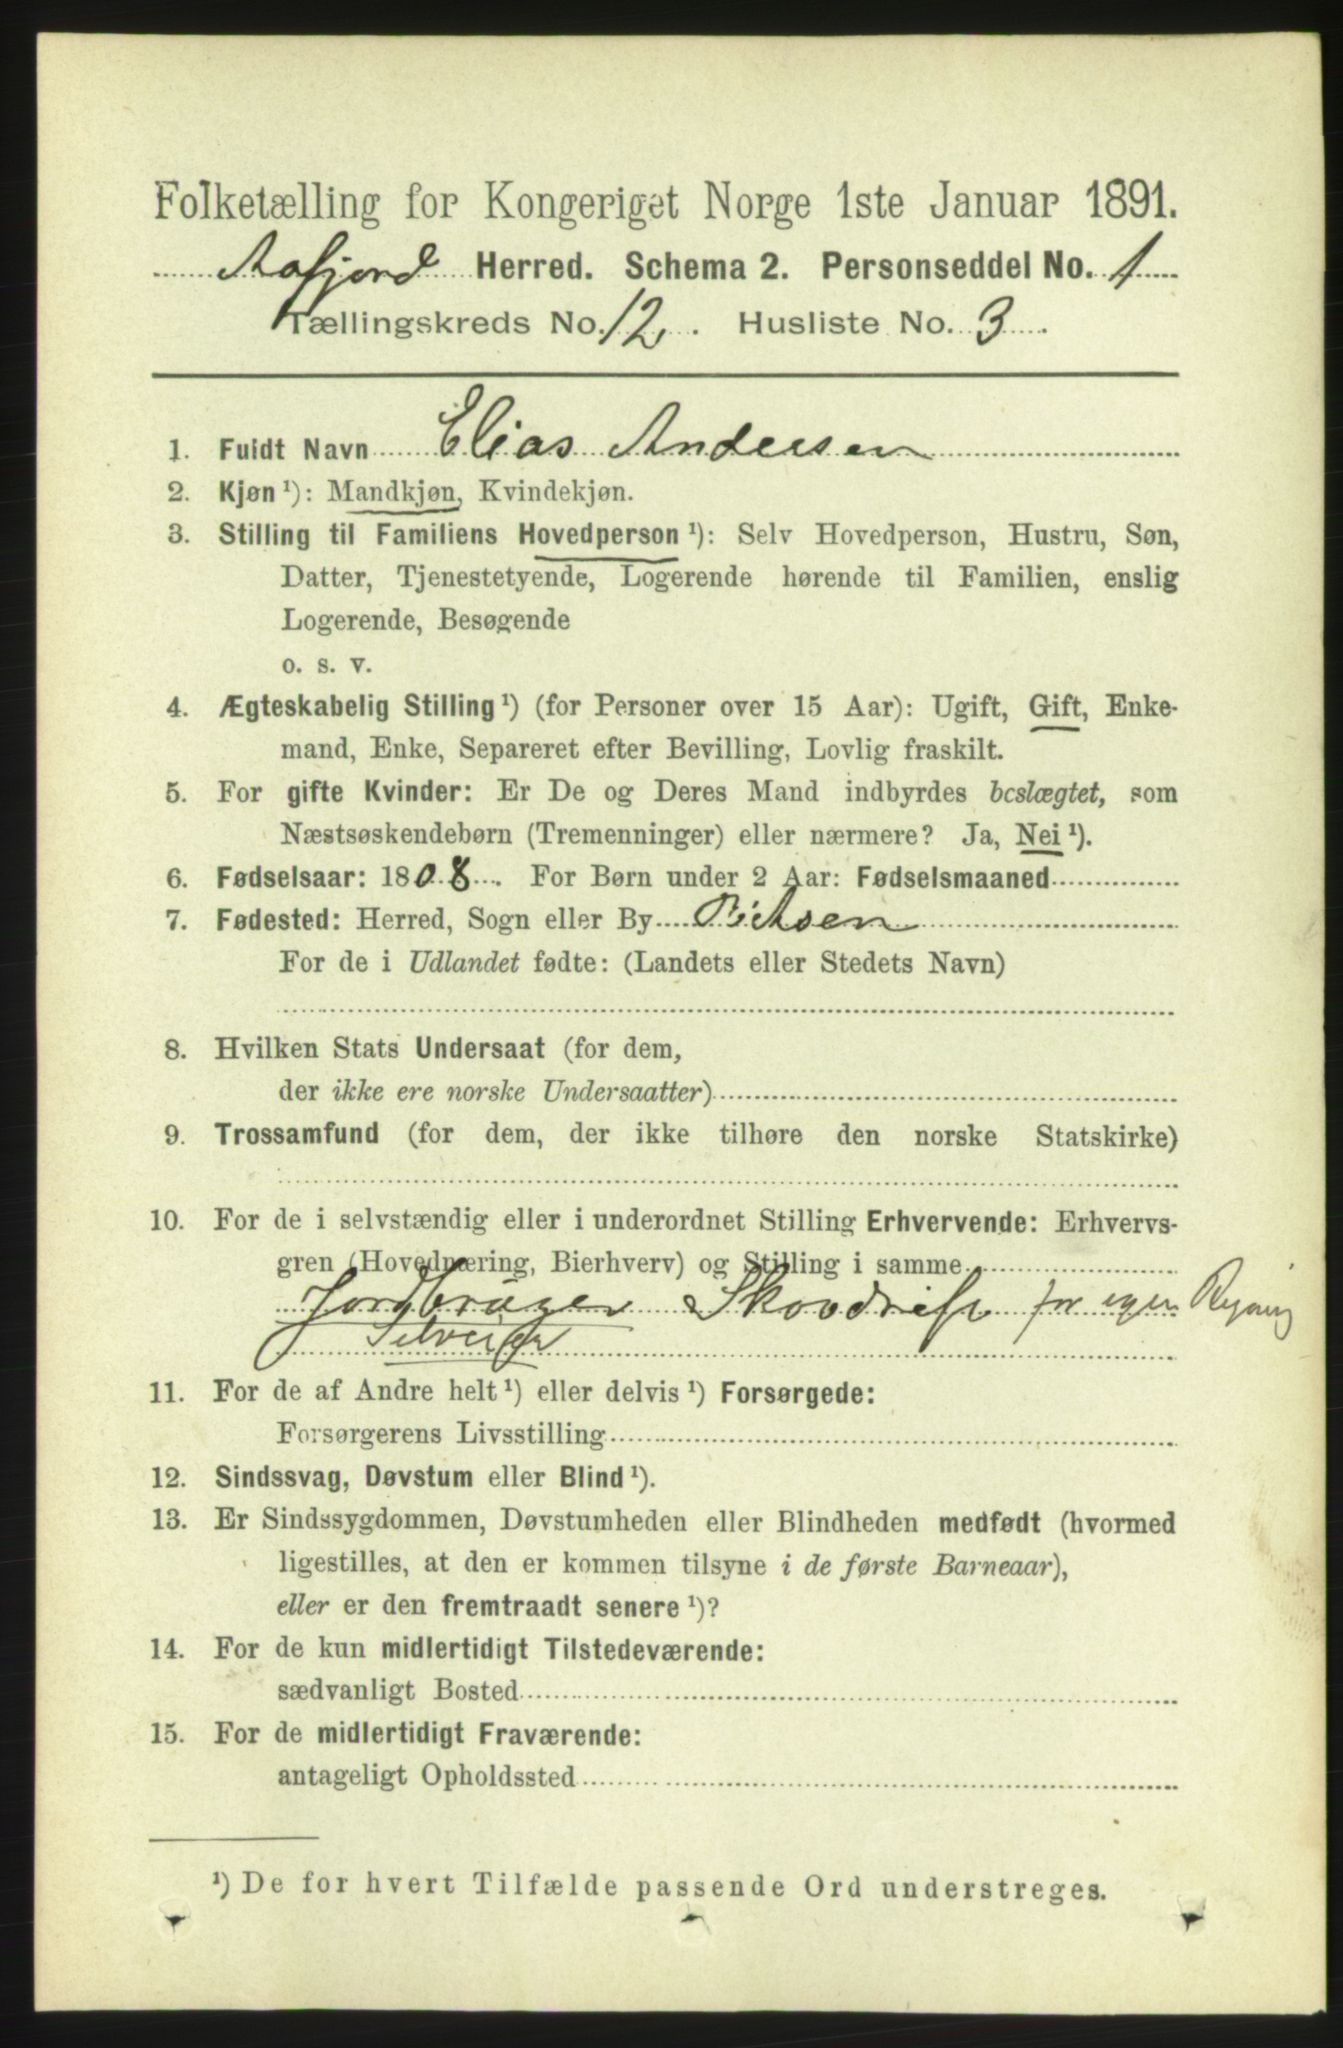 Folketælling for Kongeriget Norge 1ste Januar 1891.
Aafjord Herred. Schema 2. Personseddel No. 1
Tællingskreds No. 12. Husliste No. 3.
1. Fuldt Navn Elias Andersen
2. Kjøn ¹): Mandkjøn, Kvindekjøn.
3. Stilling til Familiens Hovedperson ¹): Selv Hovedperson, Hustru, Søn,
Datter, Tjenestetyende, Logerende hørende til Familien, enslig
Logerende, Besøgende
o. s. v.
4. Ægteskabelig Stilling ¹) (for Personer over 15 Aar): Ugift, Gift, Enke-
mand, Enke, Separeret efter Bevilling, Lovlig fraskilt.
5. For gifte Kvinder: Er De og Deres Mand indbyrdes beslægtet, som
Næstsøskendebørn (Tremenninger) eller nærmere? Ja, Nei ¹).
6. Fødselsaar: 1808. For Børn under 2 Aar: Fødselsmaaned
7. Fødested: Herred, Sogn eller By
For de i Udlandet fødte: (Landets eller Stedets Navn)
8. Hvilken Stats Undersaat (for dem,
der ikke ere norske Undersaatter)
9. Trossamfund (for dem, der ikke tilhøre den norske Statskirke)
10. For de i selvstændig eller i underordnet Stilling Erhvervende: Erhvervs-
gren (Hovednæring, Bierhverv) og Stilling i samme
Jordbruger Skovdrift for egen Regning
Selveier
11. For de af Andre helt ¹) eller delvis ¹) Forsørgede:
Forsørgerens Livsstilling
12. Sindssvag, Døvstum eller Blind ¹).
13. Er Sindssygdommen, Døvstumheden eller Blindheden medfødt (hvormed
ligestilles, at den er kommen tilsyne i de første Barneaar),
eller er den fremtraadt senere ¹)?
14. For de kun midlertidigt Tilstedeværende:
sædvanligt Bosted
15. For de midlertidigt Fraværende:
antageligt Opholdssted
¹) De for hvert Tilfælde passende Ord understreges.